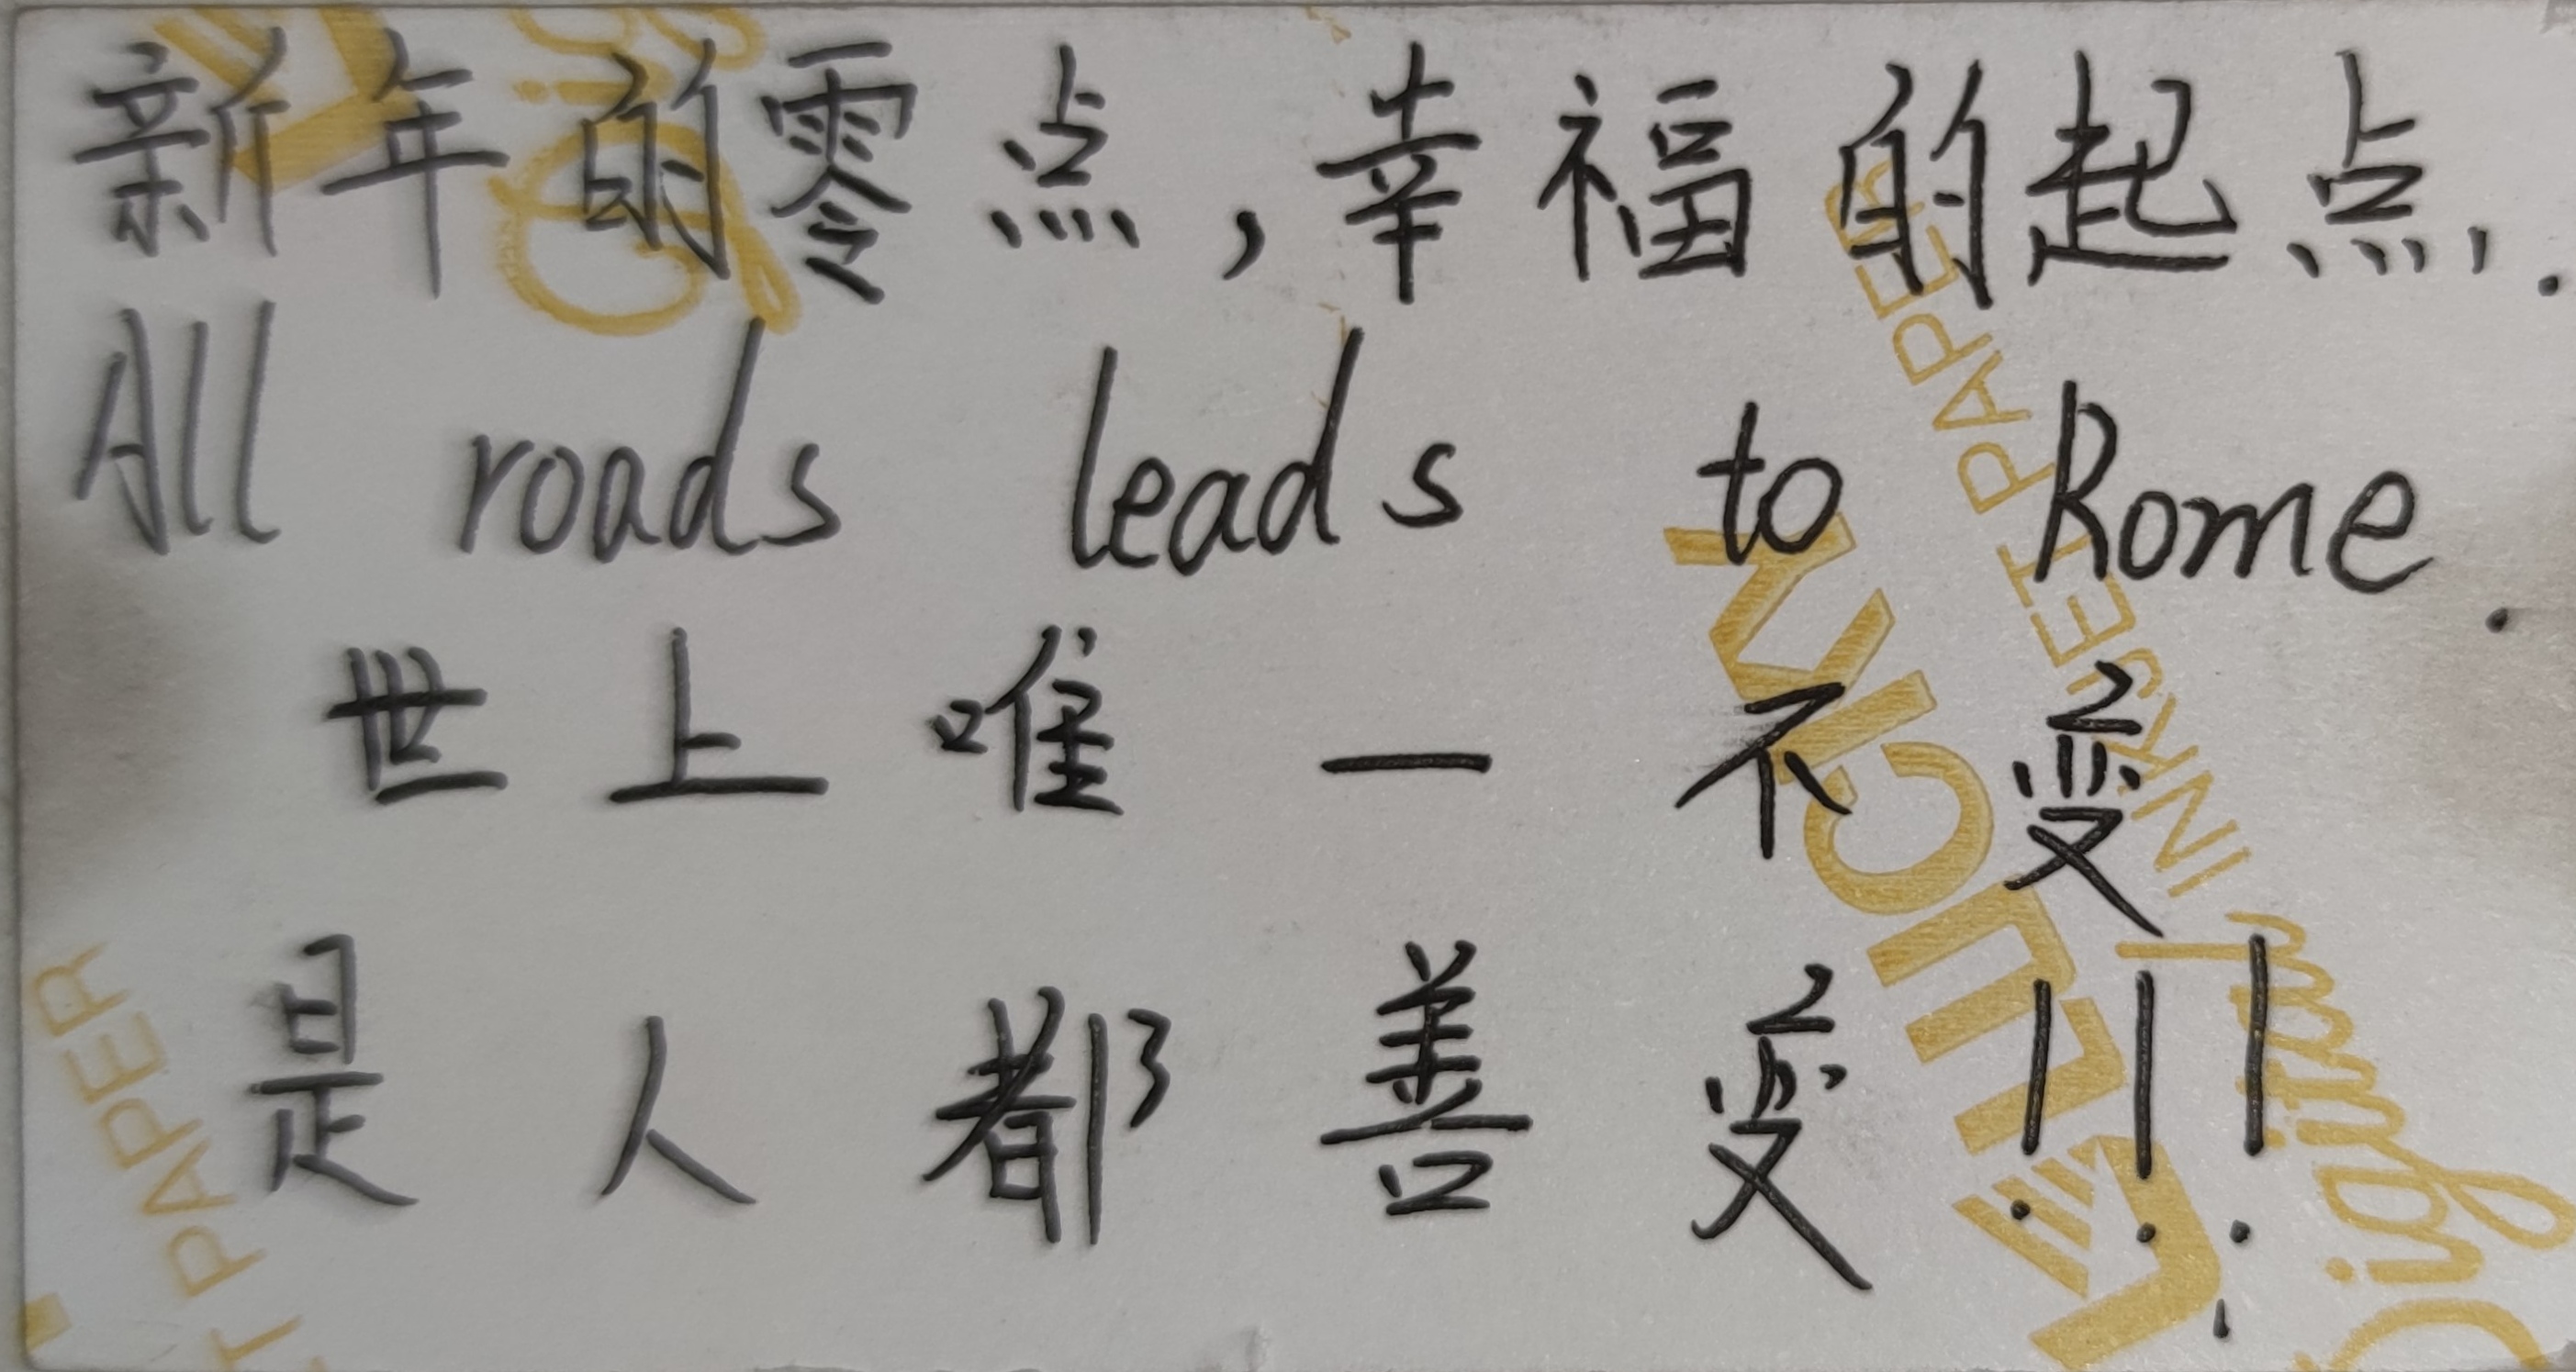 新年的零点，幸福的起点.
All roads leads to Rome.
世上唯一不变
是人都善变!!!
LUCKY
INKJET PAPER
Digital
PAPER
T PAPER